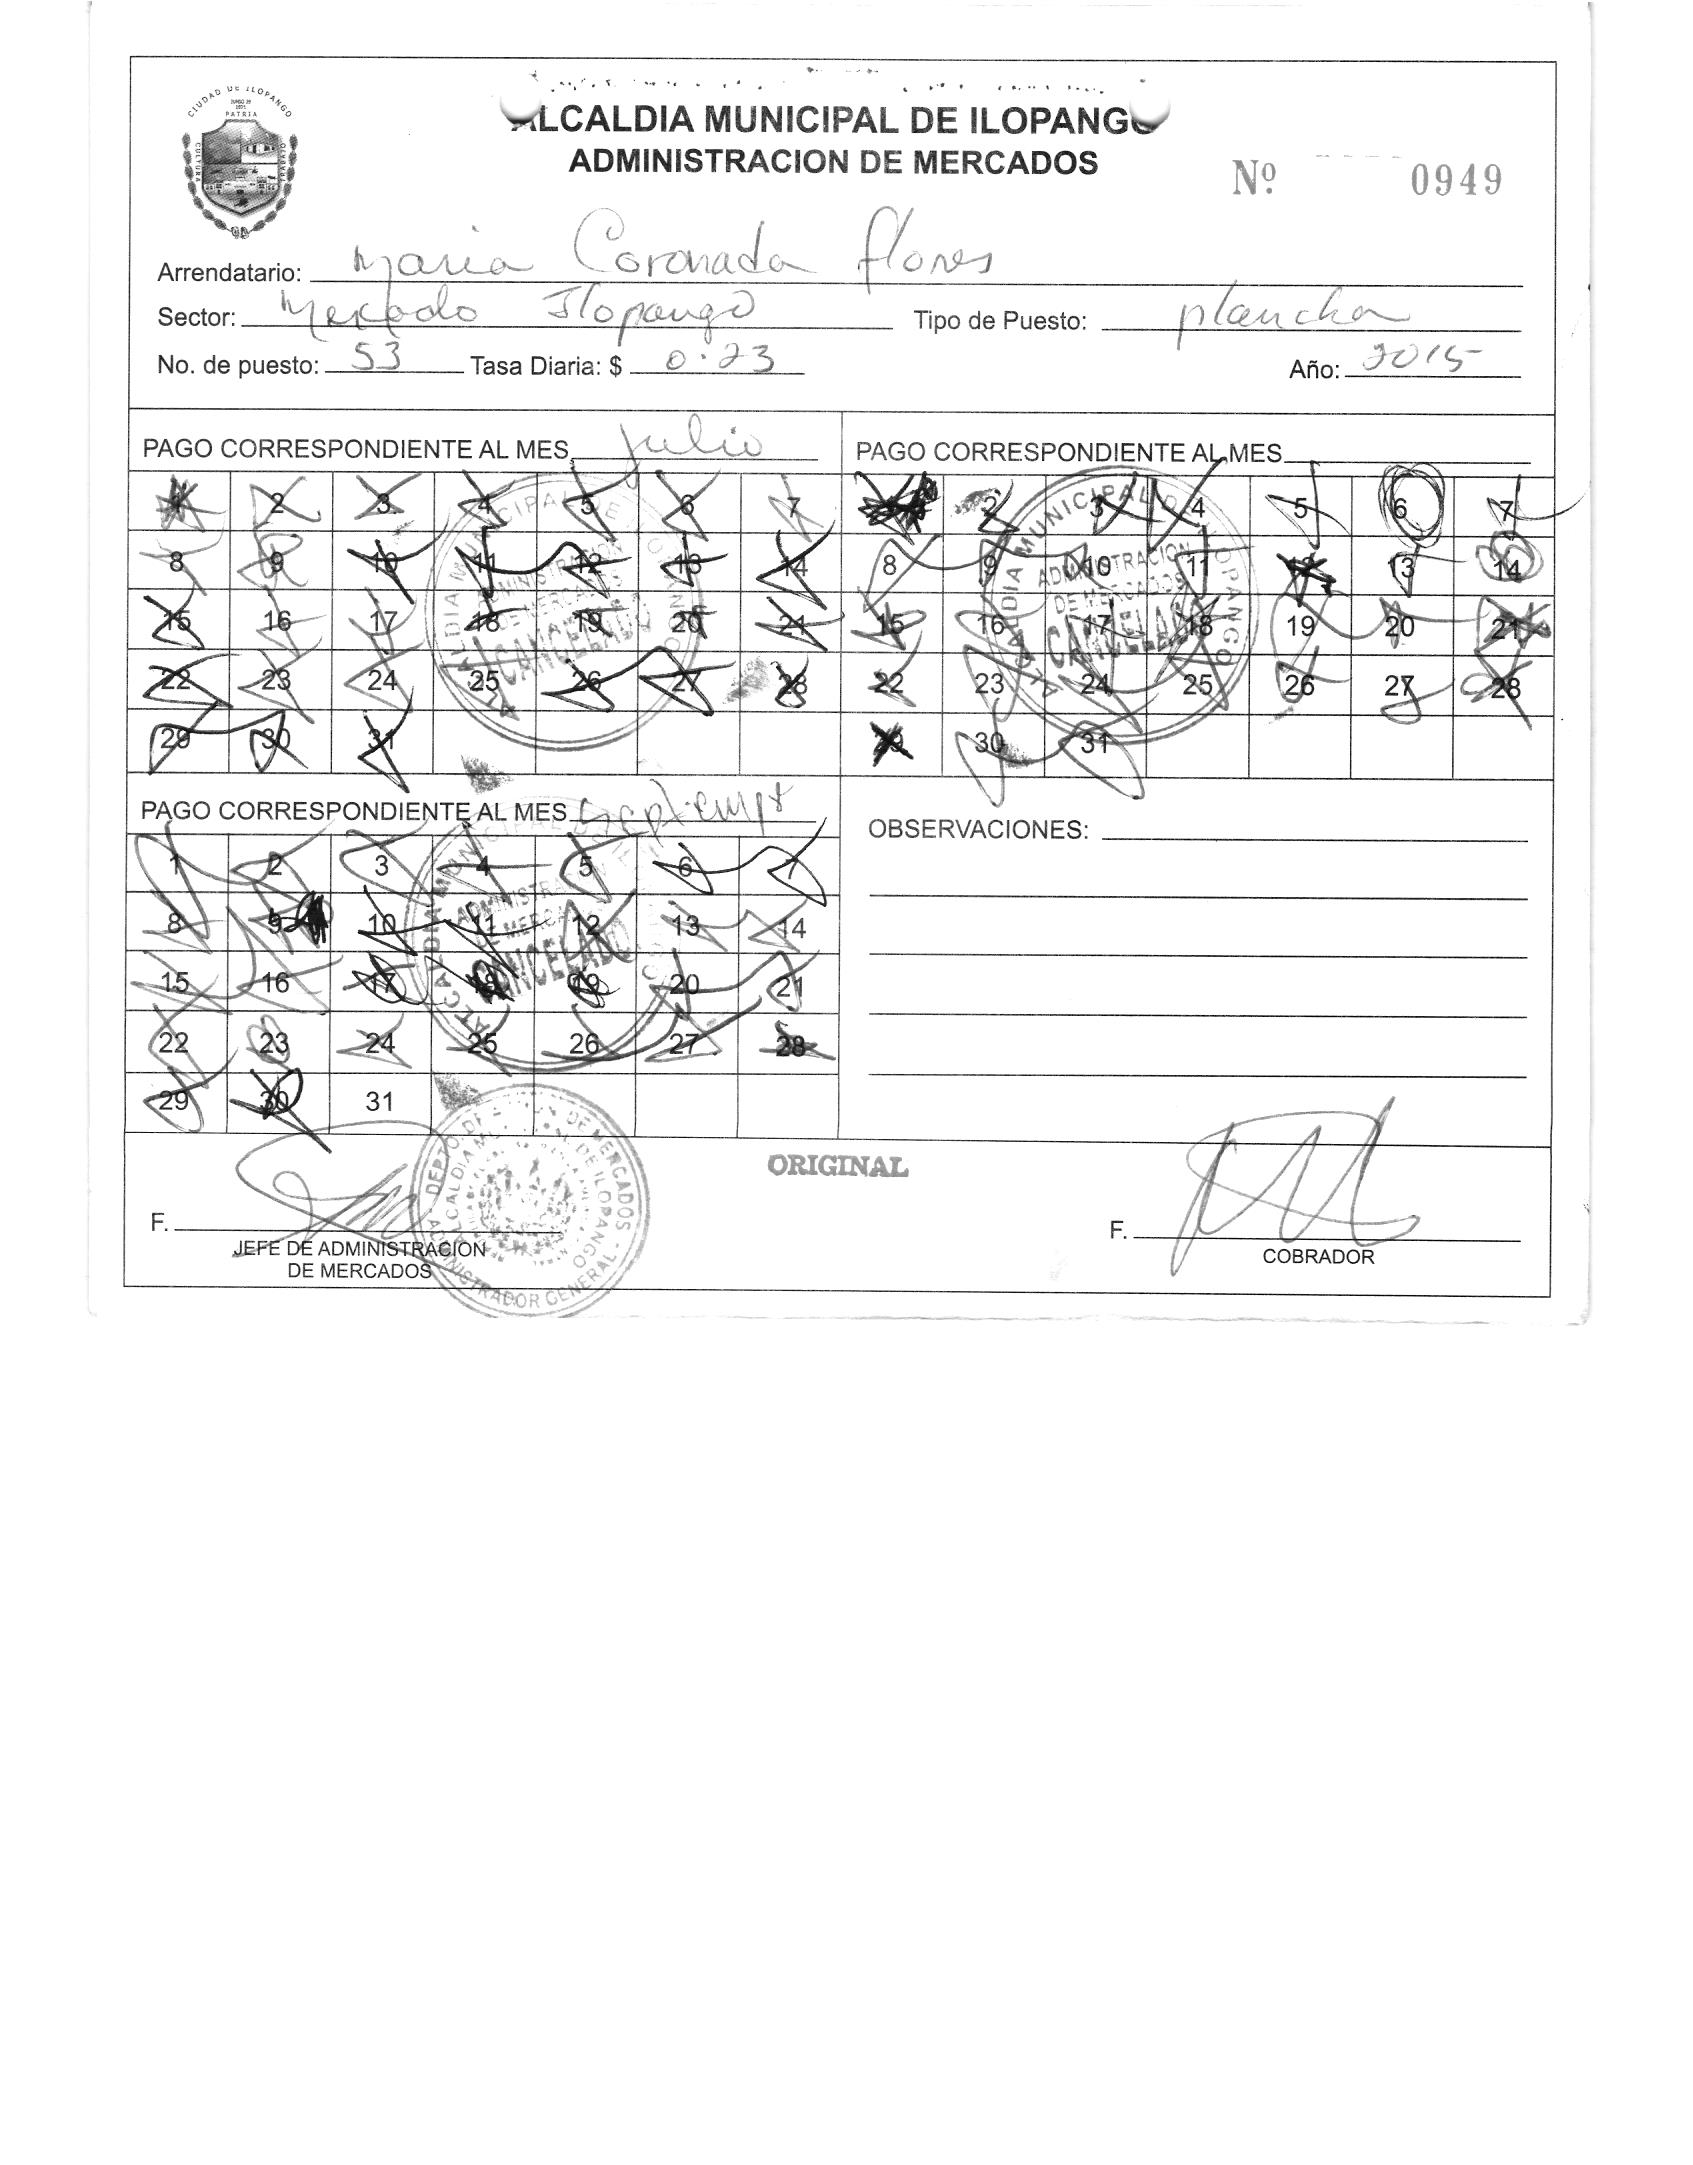 CIUDAD DE ILOPANGO
PATRIA
CULTURA
ALCALDIA MUNICIPAL DE ILOPANGO
ADMINISTRACION DE MERCADOS
Nº 0949
Arrendatario: Maria Coronada flores
Sector: Mercado Ilopango Tipo de Puesto: plancha
No. de puesto: 53 Tasa Diaria: $ 0.23 Año: 2015
PAGO CORRESPONDIENTE AL MES Julio
1 2 3 4 5 6 7
8 9 10 11 12 13 14
15 16 17 18 19 20 21
22 23 24 25 26 27 28
29 30 31
ALCALDIA MUNICIPAL DE ILOPANGO
ADMINISTRACION
DE MERCADOS
CANCELADO
PAGO CORRESPONDIENTE AL MES
1 2 3 4 5 6 7
8 9 10 11 12 13 14
15 16 17 18 19 20 21
22 23 24 25 26 27 28
29 30 31
ALCALDIA MUNICIPAL DE ILOPANGO
ADMINISTRACION
DE MERCADOS
CANCELADO
PAGO CORRESPONDIENTE AL MES
1 2 3 4 5 6 7
8 9 10 11 12 13 14
15 16 17 18 19 20 21
22 23 24 25 26 27 28
29 30 31
ALCALDIA MUNICIPAL DE ILOPANGO
ADMINISTRACION
DE MERCADOS
CANCELADO
OBSERVACIONES:
ORIGINAL
F.
JEFE DE ADMINISTRACION
DE MERCADOS
DE MERCADOS
ALCALDIA MUNICIPAL DE ILOPANGO
ADMINISTRADOR GENERAL
F.
COBRADOR